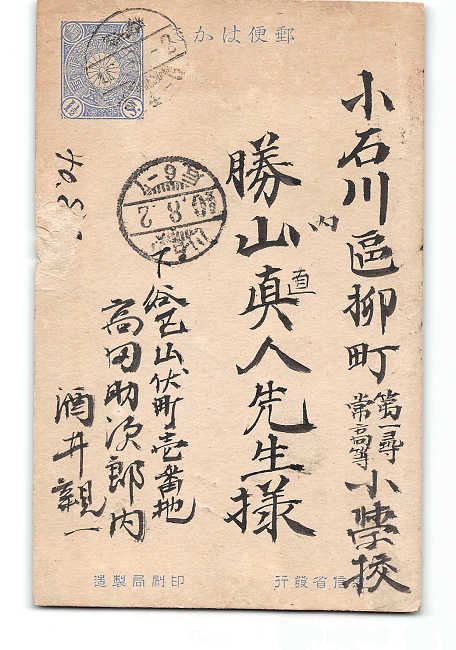 郵便はかき
小石川區柳町
第一尋
常高等
小學校
内
勝山直真人先生様
下谷區山伏町壱番地
高田助次郎内
酒井親一
40.8.2
印刷局製造
信省發行